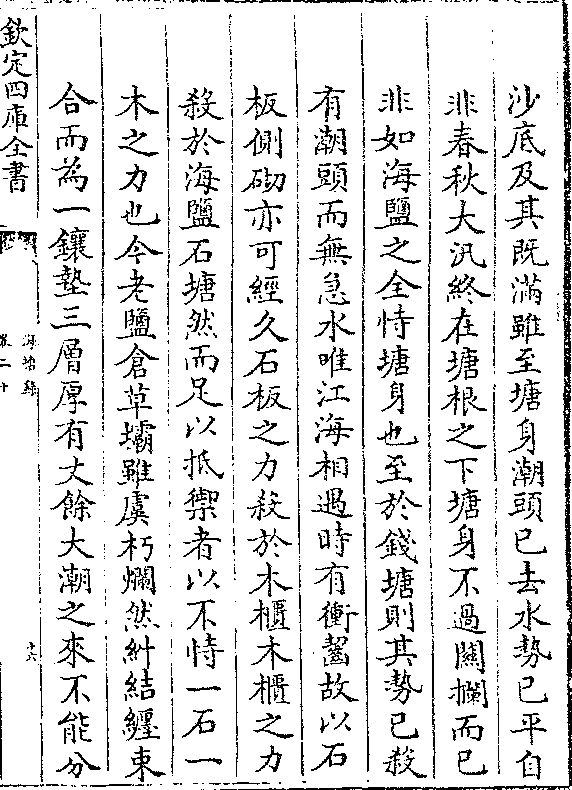 沙底及其既滿雖至塘身潮頭已去水勢已平自
非春秋大汛終在塘根之下塘身不過闗攔而已
非如海鹽之全恃塘身也至於錢塘則其勢已殺
有潮頭而無急水唯江海相遇時有衝齧故以石
板側砌亦可經久石板之力殺於木櫃木櫃之力
殺於海鹽石塘然而足以抵禦者以不恃一石一
木之力也今老鹽倉草壩雖虞朽爛然糾結纒束
合而為一鑲墊三層厚有丈餘大潮之來不能分
欽定四庫全書
海塘録
卷二十
十六